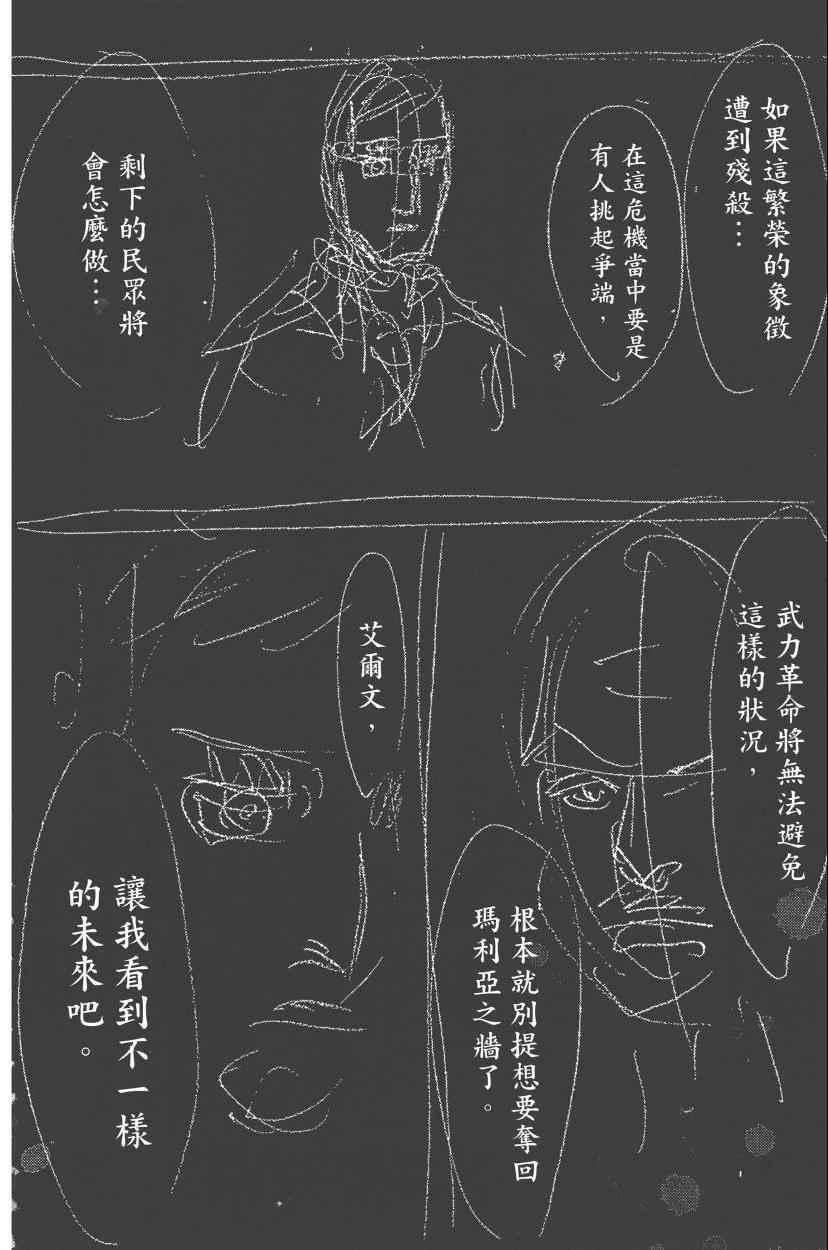 如果這繁榮的象徵
遭到殘殺…
在這危機當中要是
有人挑起爭端，
剩下的民眾將
會怎麼做…
武力革命將無法避免
這樣的狀況，
根本就別提想要奪回
瑪利亞之牆了。
艾爾文，
讓我看到不一樣
的未來吧。